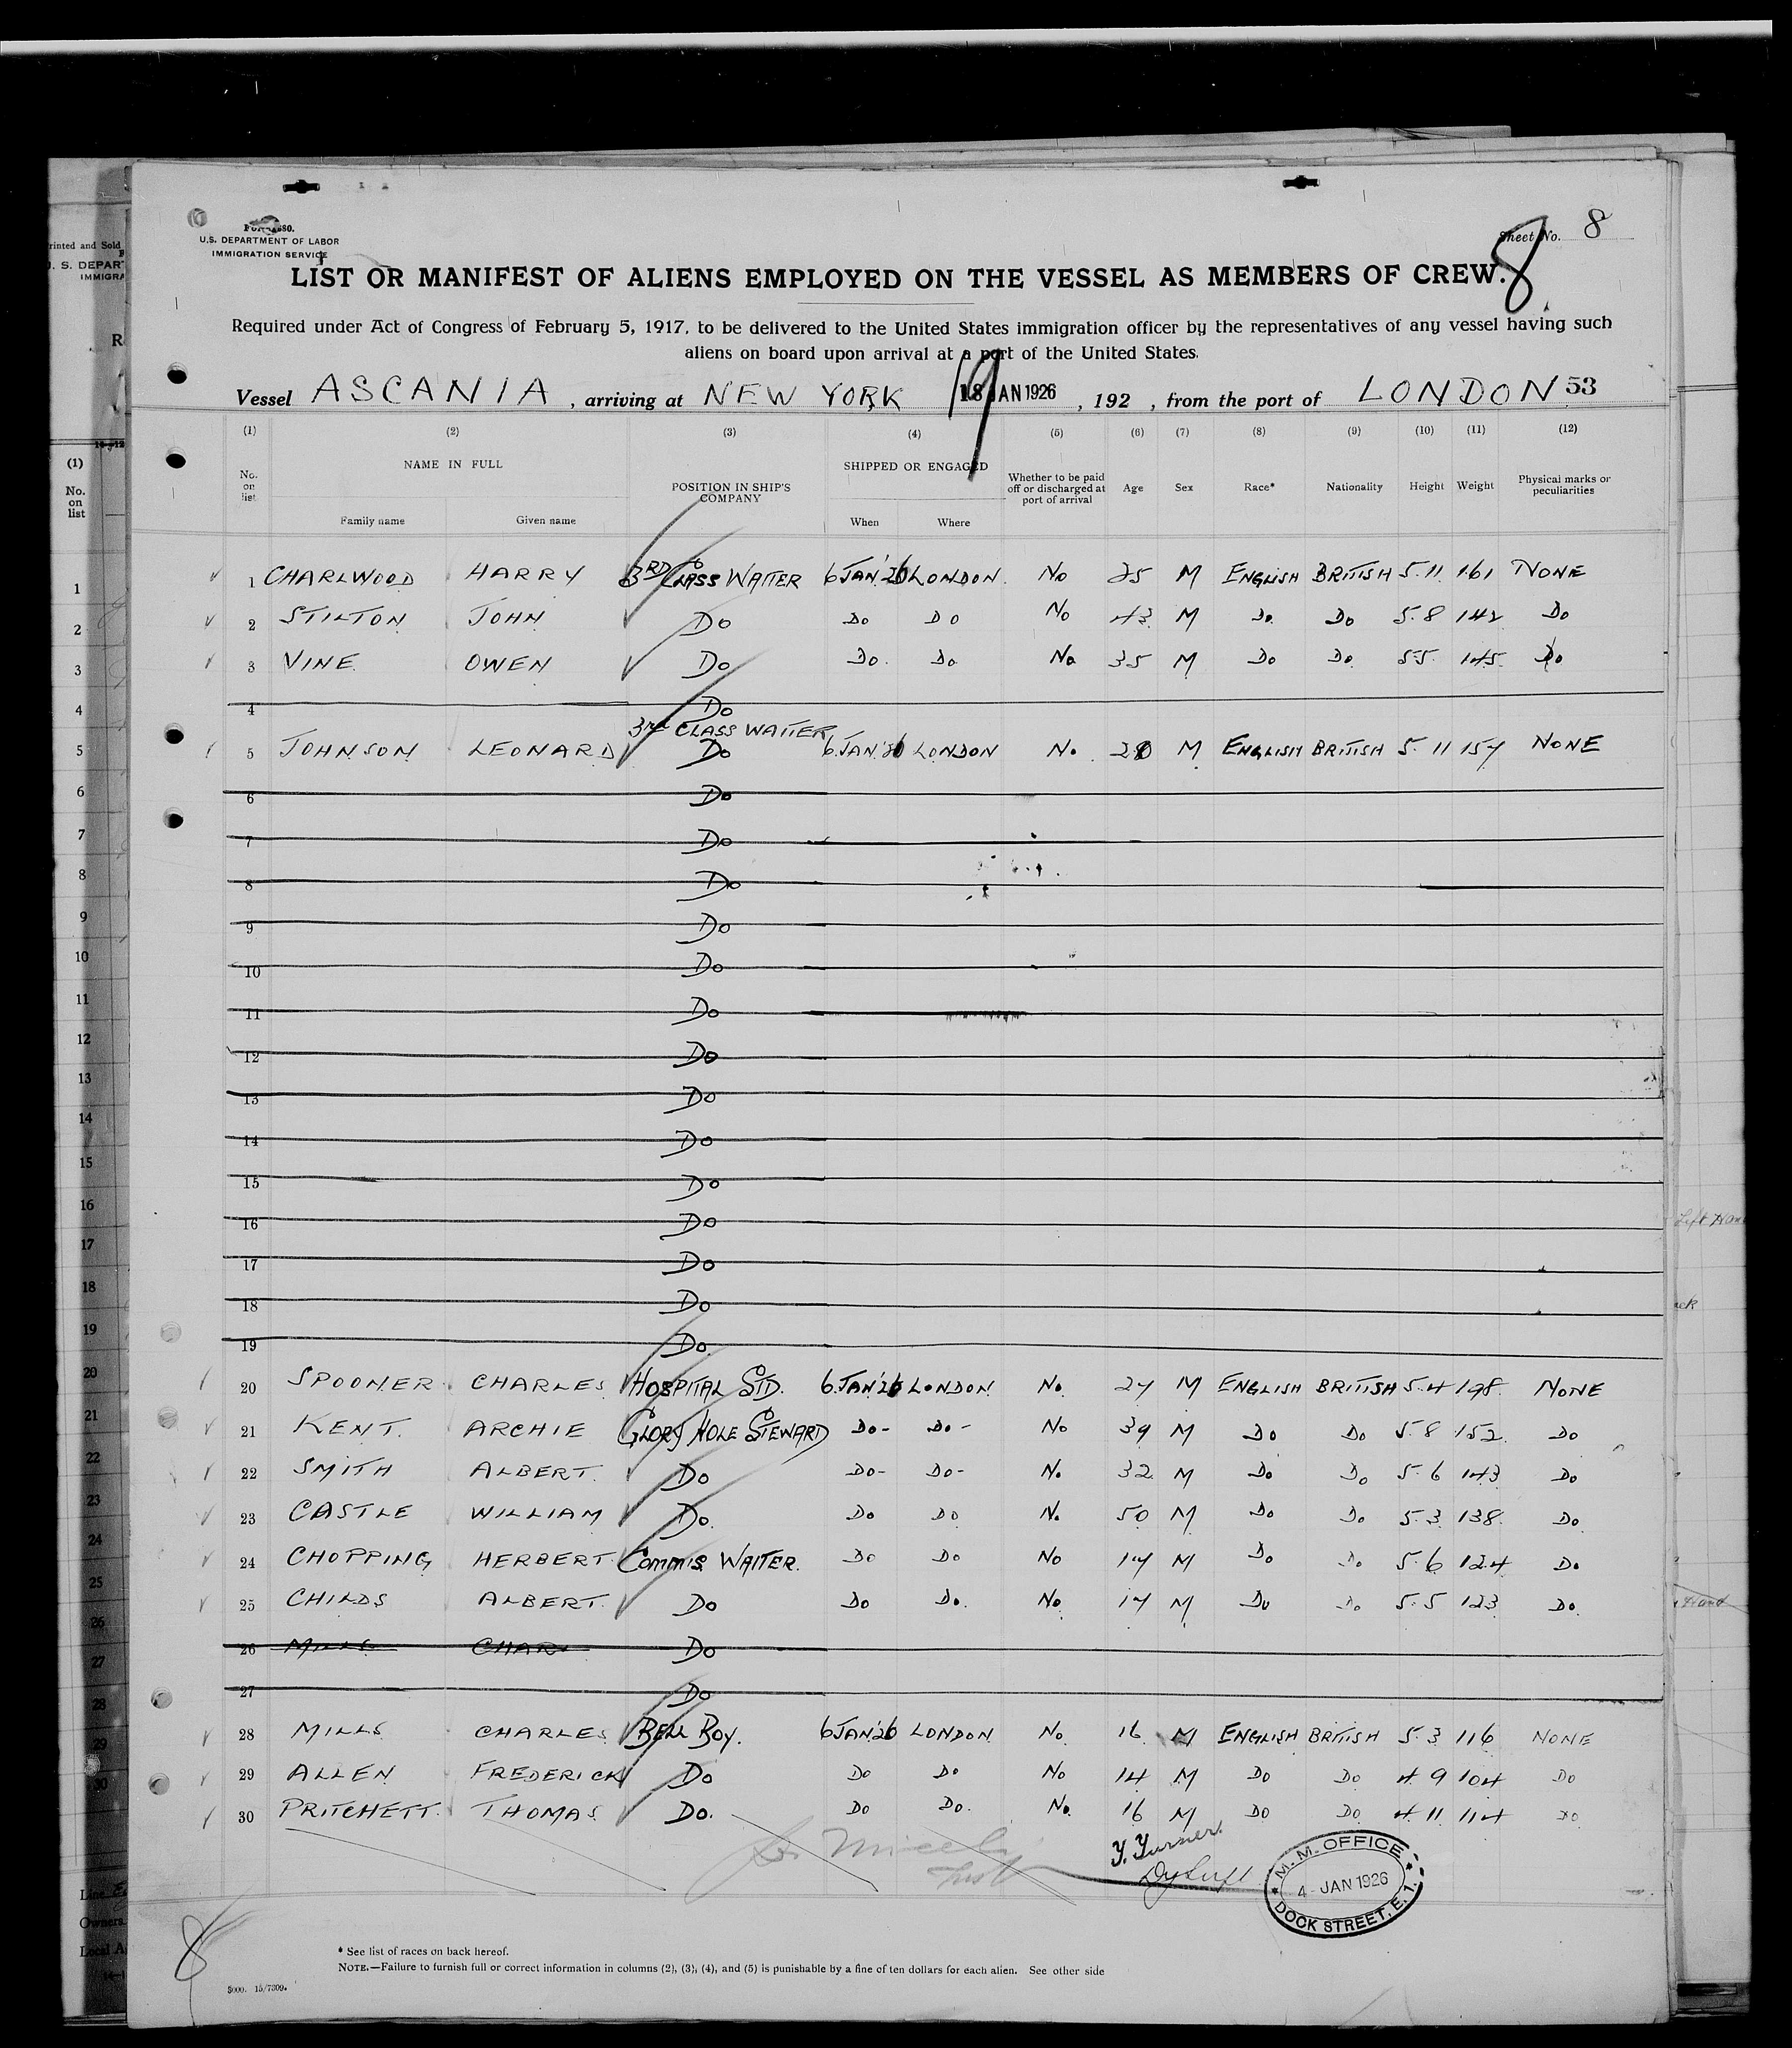 FORM 680.
U.S. DEPARTMENT OF LABOR
IMMIGRATION SERVICE
Sheet No. 8
8
LIST OR MANIFEST OF ALIENS EMPLOYED ON THE VESSEL AS MEMBERS OF CREW.
Required under Act of Congress of February 5, 1917, to be delivered to the United States immigration officer by the representatives of any vessel having such
aliens on board upon arrival at a port of the United States.
Vessel ASCANIA, arriving at NEW YORK 18 JAN 1926, 192 , from the port of LONDON 53
19
(1) (2) (3) (4) (5) (6) (7) (8) (9) (10) (11) (12)
No. on list NAME IN FULL Family name Given name POSITION IN SHIP'S COMPANY SHIPPED OR ENGAGED When Where Whether to be paid off or discharged at port of arrival Age Sex Race* Nationality Height Weight Physical marks or peculiarities
1 CHARLWOOD HARRY 3RD CLASS WAITER 6 JAN '26 LONDON. No 25 M ENGLISH BRITISH 5.11 161 NONE
2 STILTON JOHN Do Do Do No 43 M Do Do 5.8 142 Do
3 VINE OWEN Do Do. Do No 35 M Do Do 5.5. 145. Do
4 Do
3rd CLASS WAITER
5 JOHNSON LEONARD Do 6 JAN '26 LONDON No. M ENGLISH BRITISH 5.11 157 NONE
6 Do
7 Do
8 Do
9 Do
10 Do
11 Do
12 Do
13 Do
14 Do
15 Do
16 Do
17 Do
18 Do
19 Do.
20 SPOONER CHARLES HOSPITAL STD. 6 JAN '26 LONDON No. 27 M ENGLISH BRITISH 5.4 198. NONE
21 KENT. ARCHIE GLORY HOLE STEWARD Do- Do- No 39 M Do Do 5.8 152. Do
22 SMITH ALBERT. Do Do- Do- No. 32 M Do Do 5.6 143 Do
23 CASTLE WILLIAM Do. Do Do No. 50 M Do Do 5.3 138. Do
24 CHOPPING HERBERT. COMMIS WAITER. Do Do No 17 M Do Do 5.6 124 Do
25 CHILDS ALBERT. Do Do Do. No. 17 M Do Do 5.5 123 Do.
26 MILLS CHAR Do
27 Do
28 MILLS CHARLES BELL BOY. 6 JAN '26 LONDON No. 16 M ENGLISH BRITISH 5.3 116 NONE
29 ALLEN FREDERICK Do Do Do No 14 M Do Do 4.9 104 Do
30 PRITCHETT. THOMAS Do. Do Do. No. 16 M Do Do 4.11 114 Do
M. M. OFFICE
4 - JAN 1926
DOCK STREET, E. 1.
8
* See list of races on back hereof.
NOTE.—Failure to furnish full or correct information in columns (2), (3), (4), and (5) is punishable by a fine of ten dollars for each alien. See other side
5000. 15/7309.